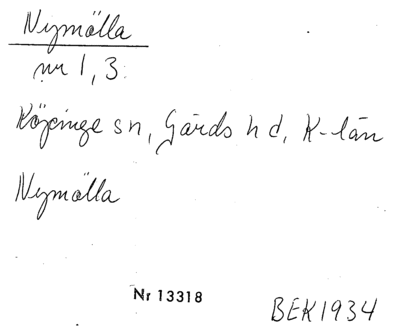 Nymölla
nr 1, 3.
Köpinge sn, Gärds hd, K-län
Nymölla
Nr 13318
BEK1934